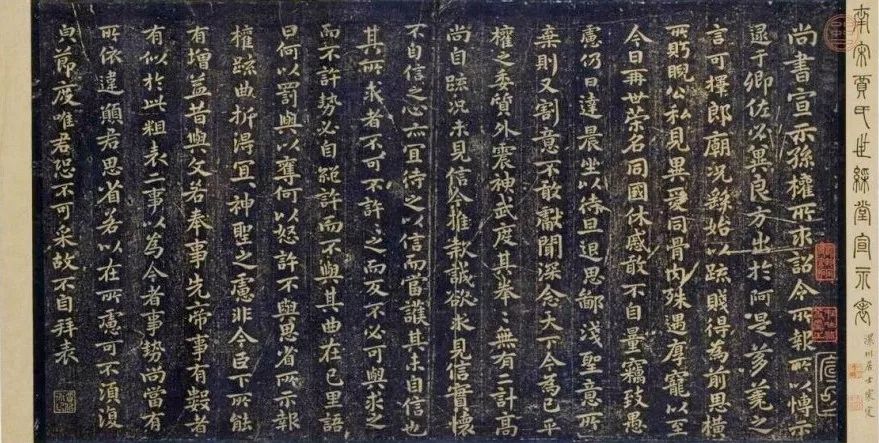 南宋賈氏世綵堂宣示表
尚書宣示孫權所求詔令所報所以博示
逮于卿佐必冀良方出於阿是芻蕘之
言可擇郎廟況繇始以疏賤得為前恩橫
所眄睨公私見異愛同骨肉殊遇厚寵以至
今日再世榮名同國休慼敢不自量竊致愚
慮仍日達晨坐以待旦退思鄙淺聖意所
棄則又割意不敢獻聞深念天下今為已平
權之委質外震神武度其拳〻無有二計高
尚自疏況未見信今推款誠欲求見信實懷
不自信之心亦宜待之以信而當護其未自信也
其所求者不可不許〻之而反不必可與求之
而不許勢必自絕許而不與其曲在己里語
曰何以罰與以奪何以怒許不與思省所示報
權疏曲折得宜神聖之慮非今臣下所能
有增益昔與文若奉事先帝事有數者
有似於此粗表二事以為今者事勢尚當有
所依違願君思省若以在所慮可不須復
節度唯君恐不可采故不自拜表